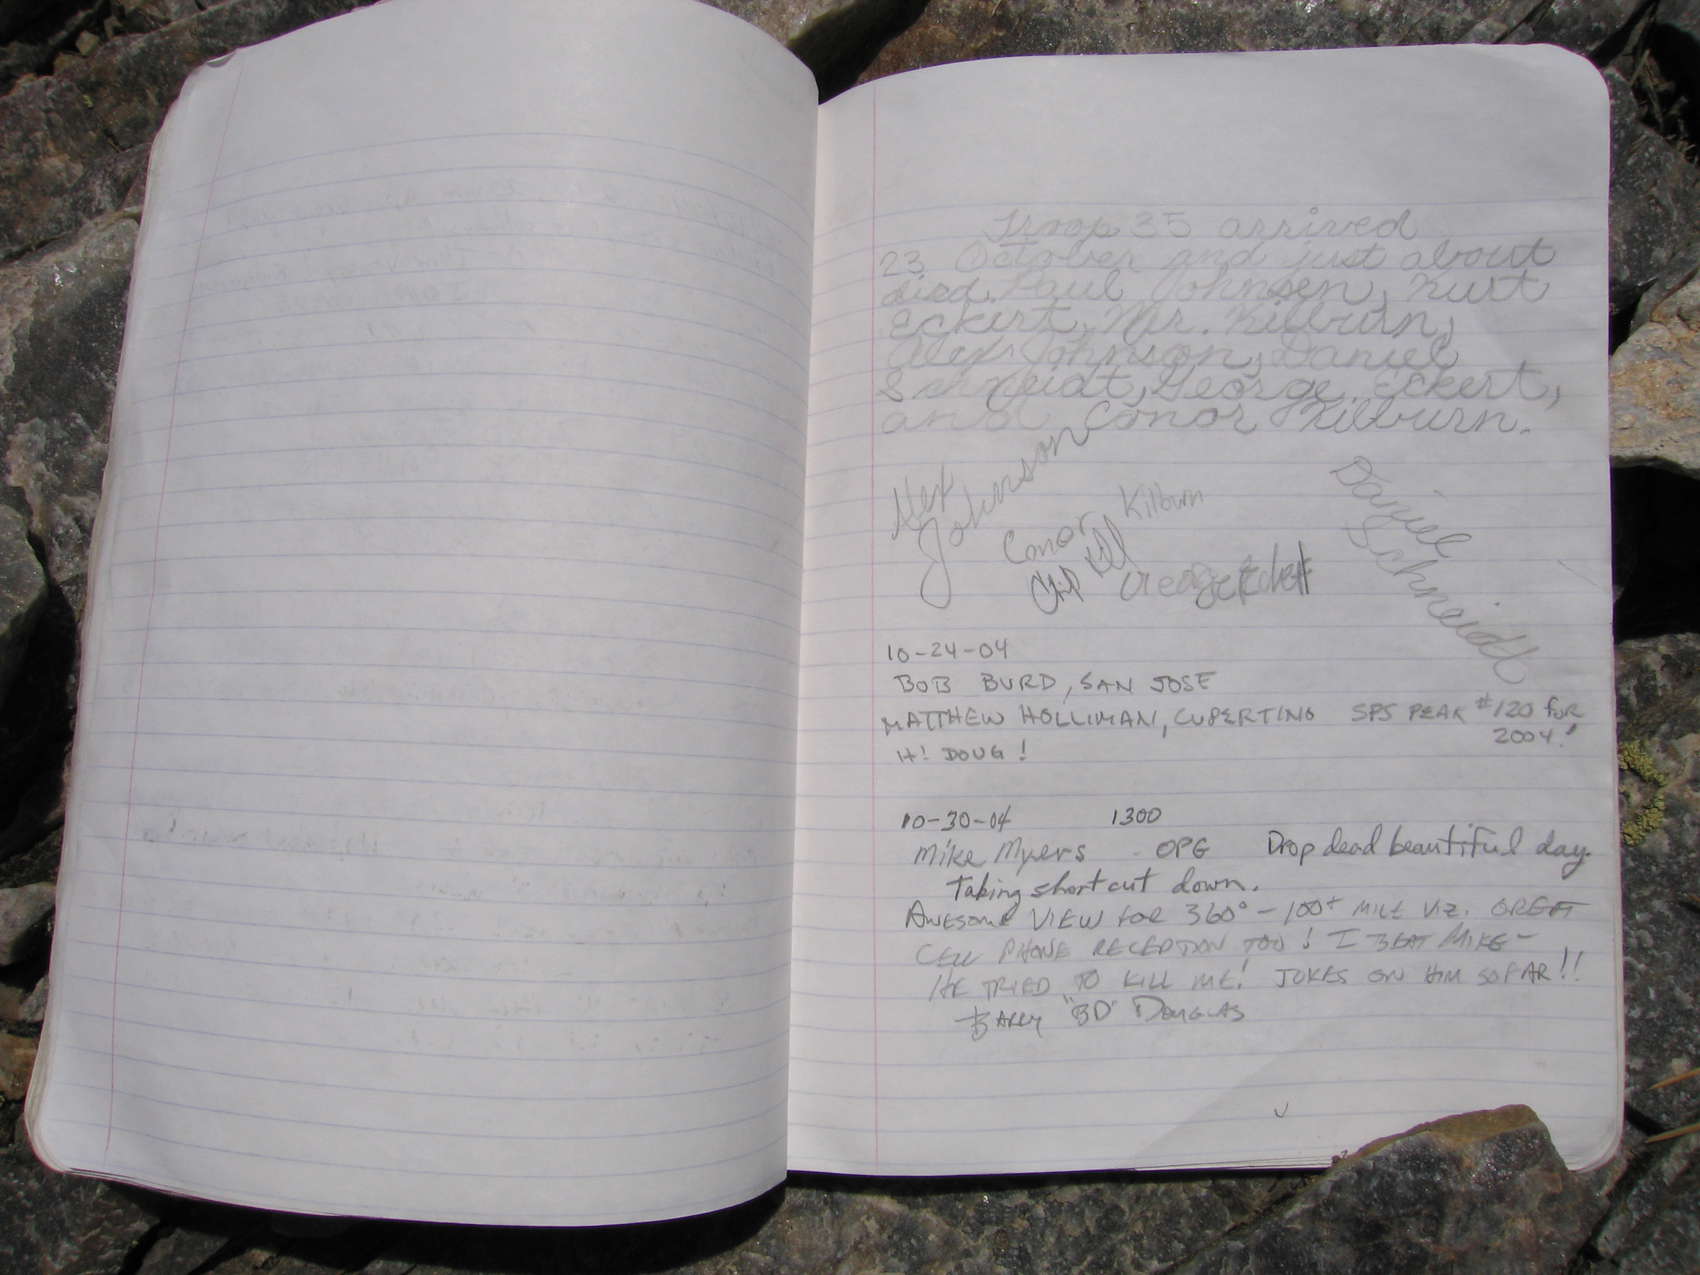 Troop 35 arrived
23 October and just about
died. Paul Johnsen, Kurt
Eckert, Mr. Kilburn,
Alex Johnson, Daniel
Schneidt, George Eckert,
and Conor Kilburn.
Alex Johnson
Conor Kilburn
Daniel Schneidt
George Eckert
10-24-04
BOB BURD, SAN JOSE
MATTHEW HOLLIMAN, CUPERTINO SPS PEAK #120 FOR
2004!
HI DOUG!
10-30-04 1300
Mike Myers - OPG Drop dead beautiful day.
Taking short cut down.
AWESOME VIEW FOR 360° - 100+ MILE VIZ. GREAT
CELL PHONE RECEPTION TOO! I BEAT MIKE -
HE TRIED TO KILL ME! JOKES ON HIM SO FAR!!
BARRY "BD" DOUGLAS